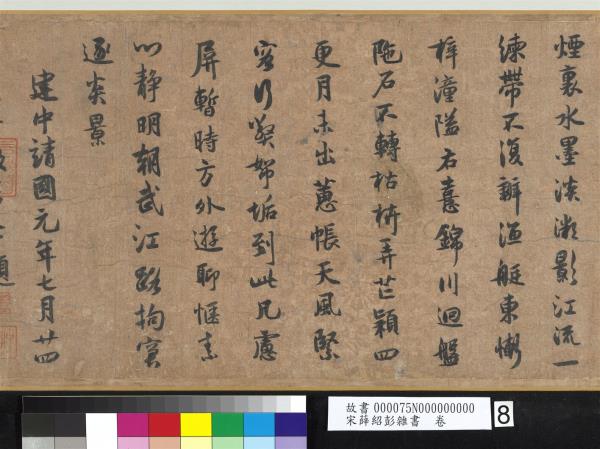 煙裏水墨淡潮影江流一
練帶不復辨漁艇東慚
梓潼隘右憙錦川迴盤
陁石不轉枯枿弄芒穎四
更月未出蕙帳天風緊
客行弊垢到此凡慮
屏暫時方外遊聊愜素
心静明朝武江路拘窘
逐炎景
建中靖國元年七月廿四
題
故書 000075N000000000
宋薛紹彭雜書 卷
8